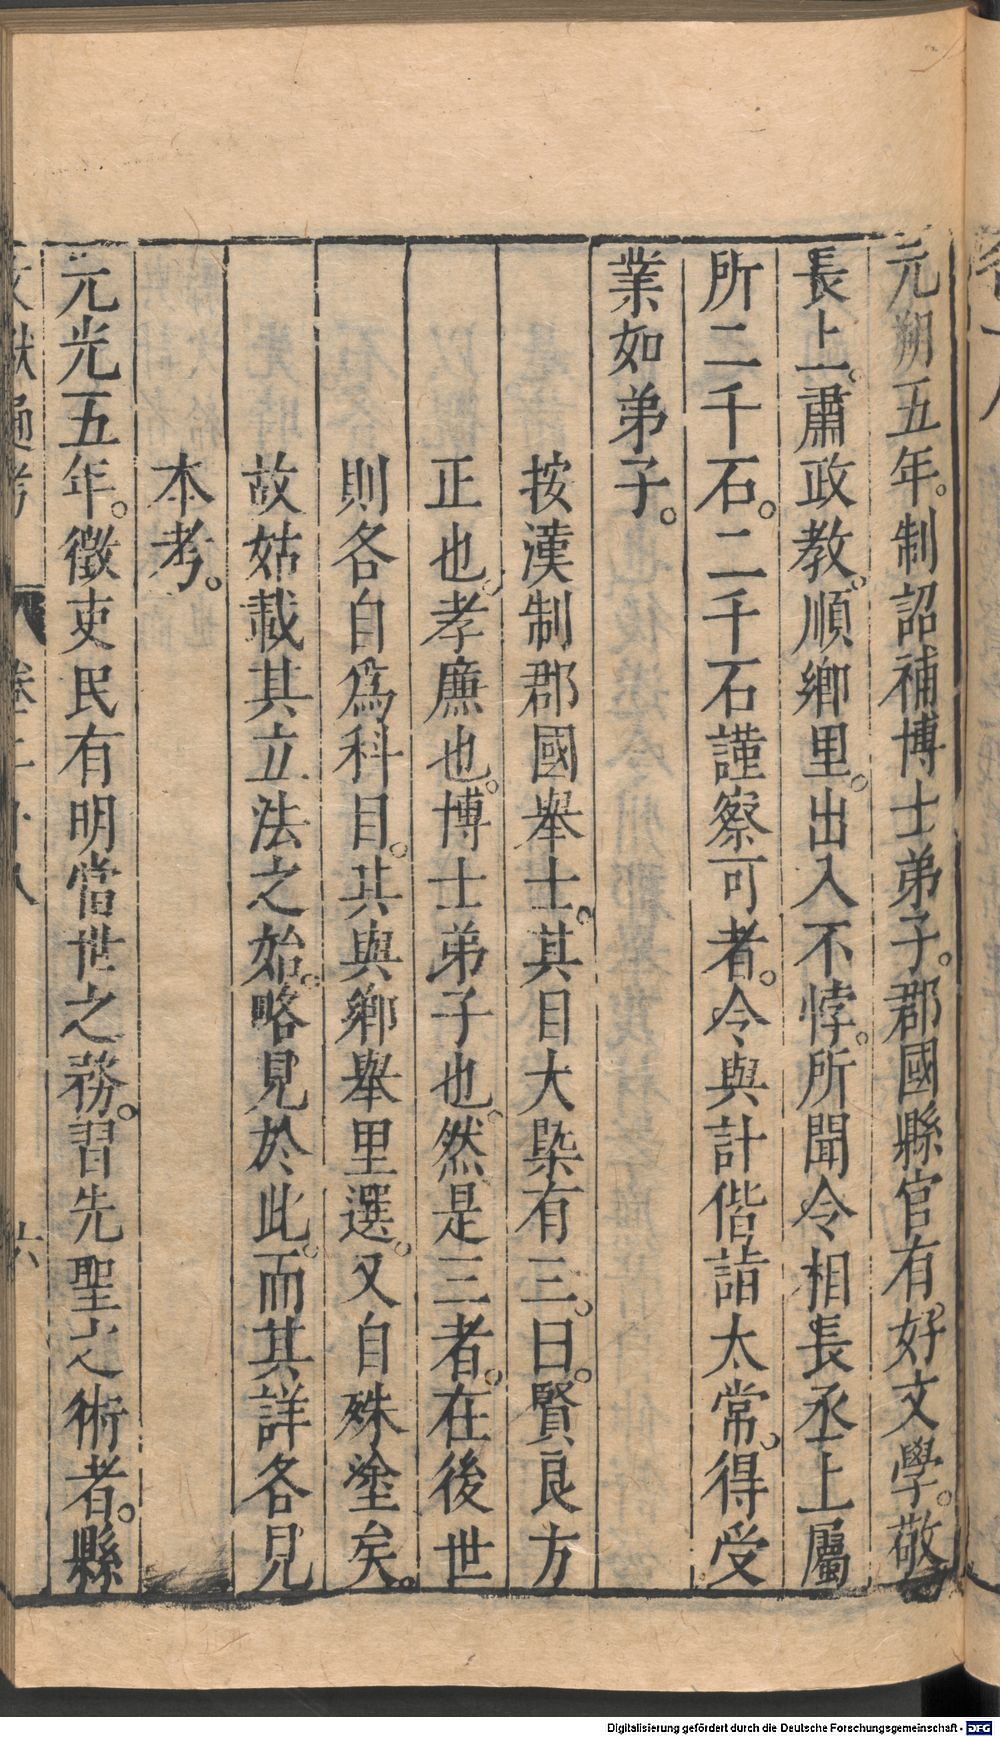 元朔五年。制詔補博士弟子。郡國縣官有。好文學。敬
長上。肅政教。順鄉里。出入不悖。所聞令相長丞上屬
所二千石。二千石謹察可者。令與計偕詣太常。得受
業如弟子。
按漢制郡國舉士。其目大槩有三。曰。賢良方
正也。孝廉也。博士弟子也。然是三者。在後世
則各自爲科目。其與鄉舉里選。又自殊塗矣。
故姑載其立法之始。略見於此。而其詳各見
本考。
元光五年。徵吏民有明當世之務。習先聖之術者。縣
文獻通考 卷二十八 六
Digitalisierung gefördert durch die Deutsche Forschungsgemeinschaft - DFG